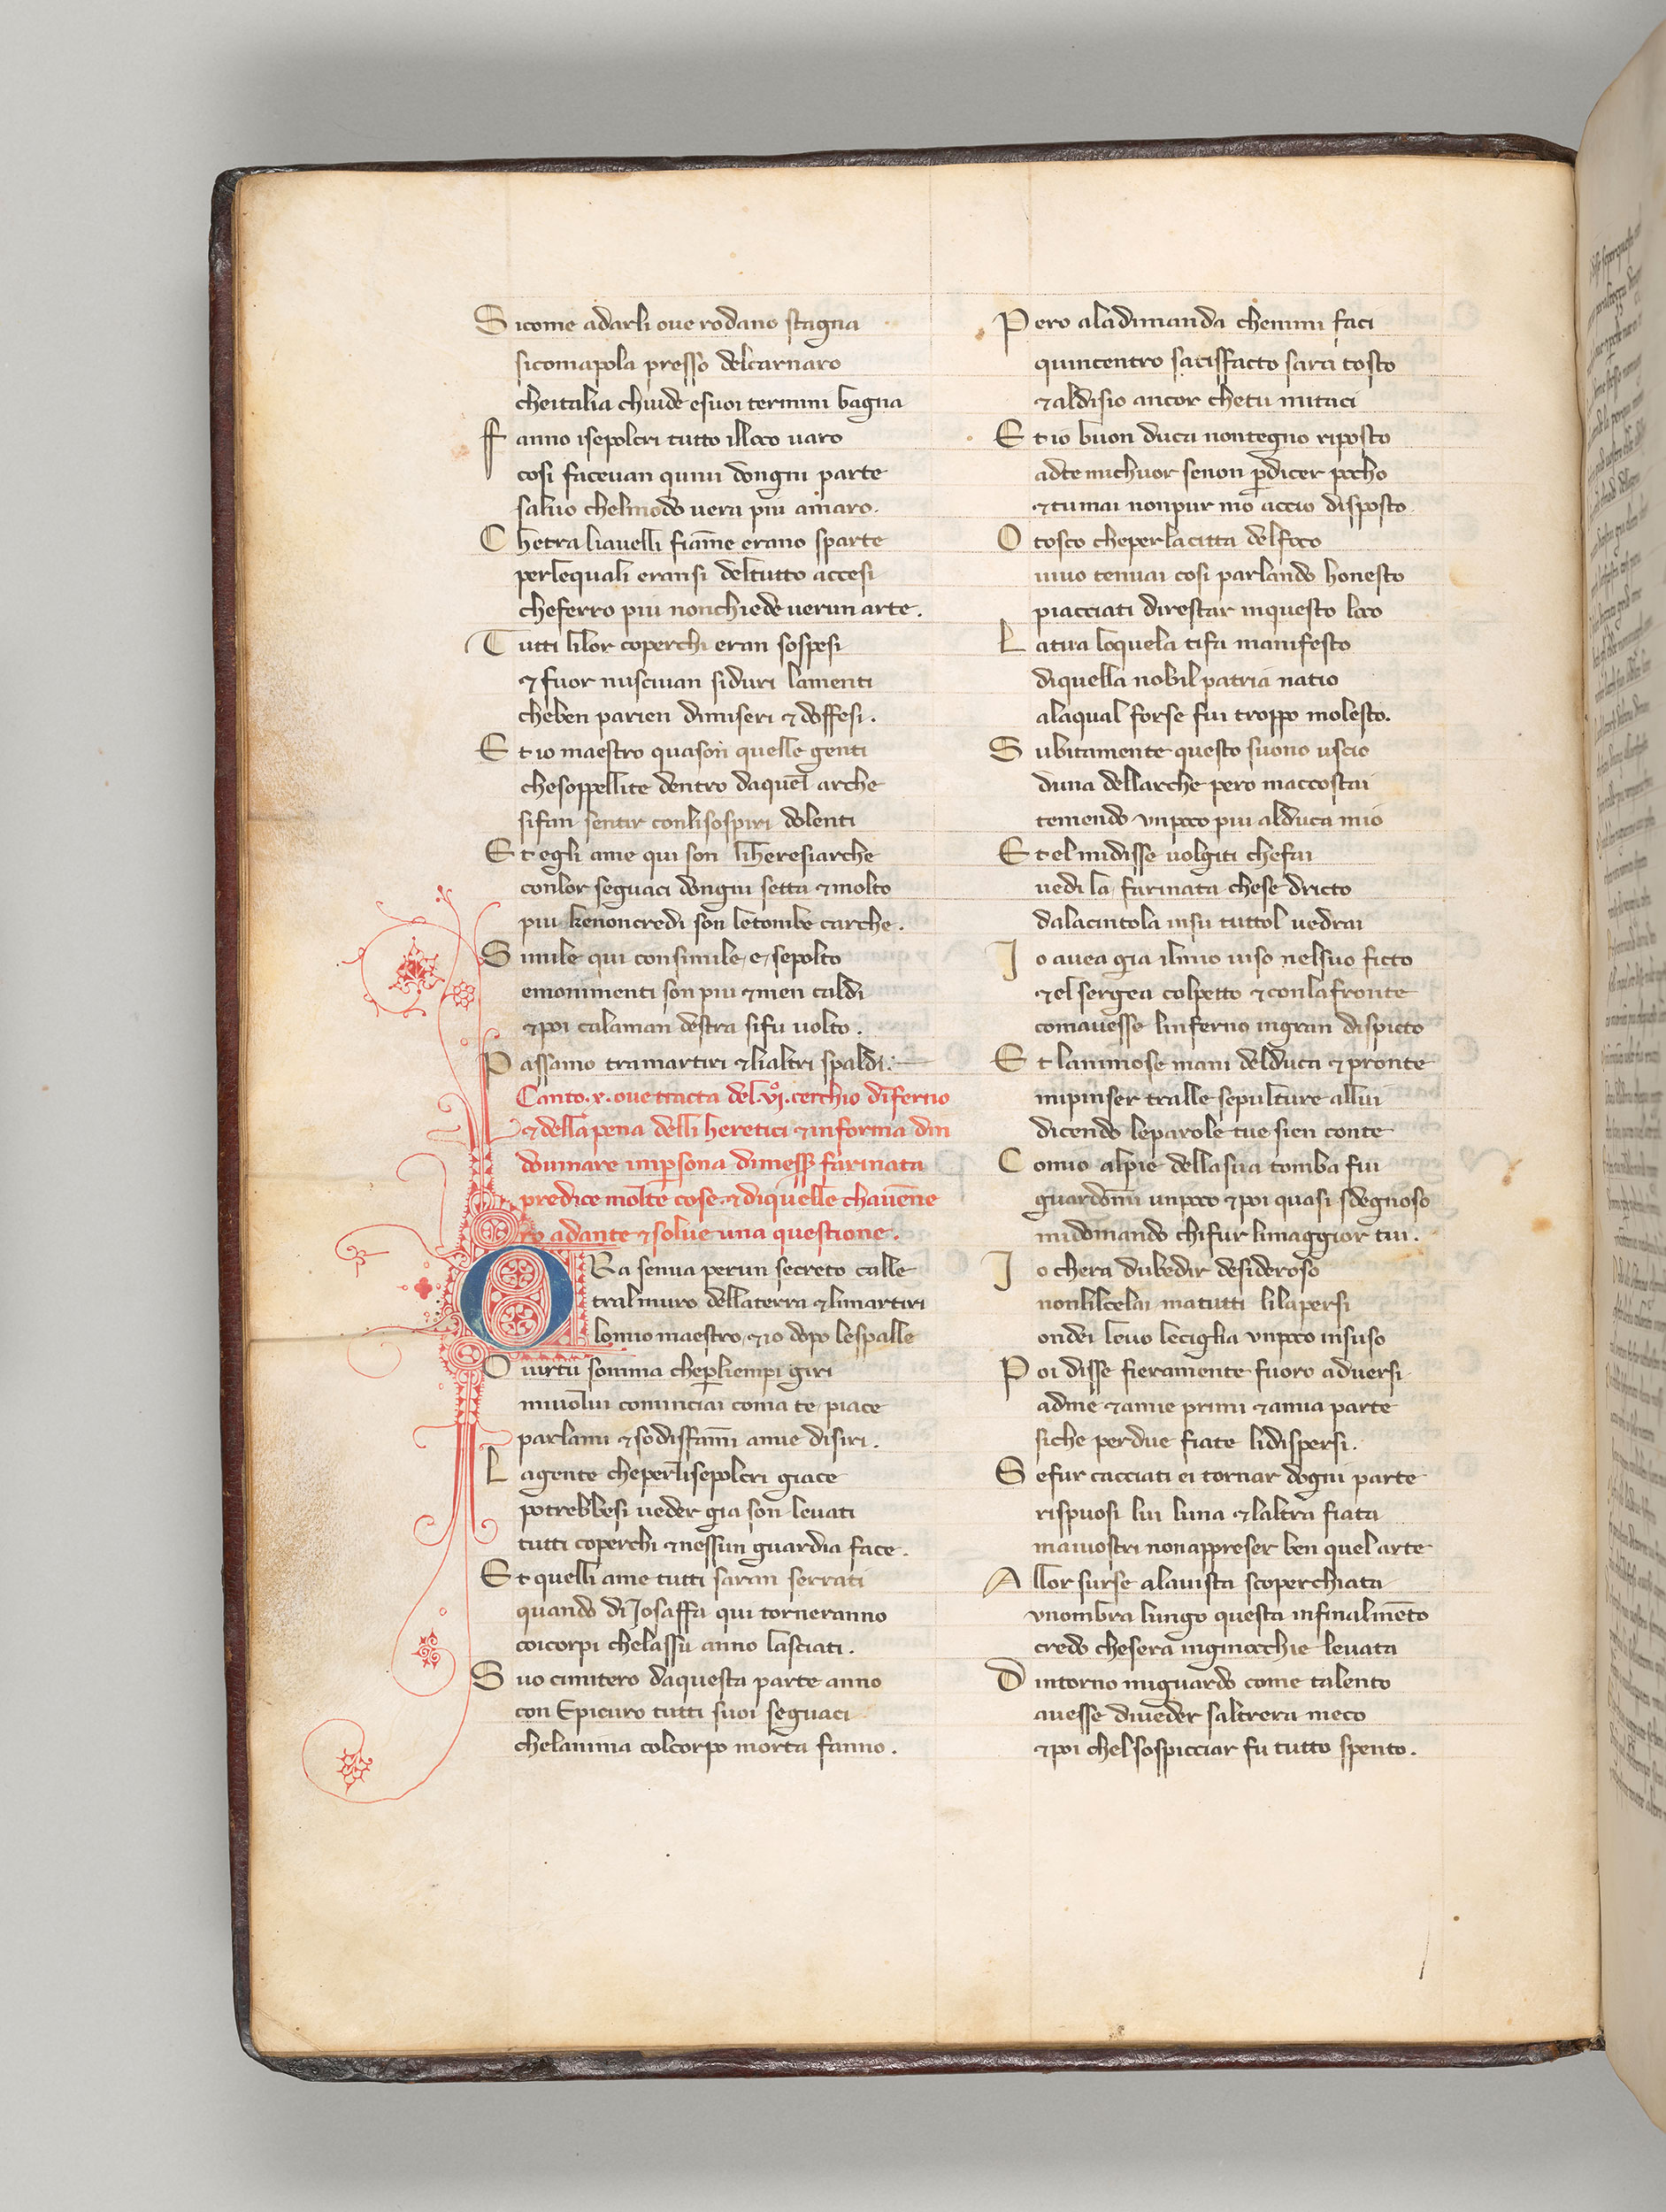 Sicome adarli oue rodano stagna
sicomapola presso delcarnaro
cheitalia chiude esuoi termini bagna
Fanno isepolcri tutto illoco uaro
cosi faceuan quiui dongni parte
saluo chelmodo uera piu amaro.
Chetra liauelli fiam̄e erano sparte
perlequali eransi deltutto accesi
cheferro piu nonchiede uerun arte.
Tutti lilor coperchi eran sospesi
⁊ fuor nusciuan siduri lamenti
cheben parien dimiseri ⁊ doffesi.
Et io maestro quason quelle genti
chesoppellite dentro daquel arche
sifan sentir conlisospiri dolenti
Et egli ame qui son liheresiarche
conlor seguaci dongni setta ⁊ molto
piu kenoncredi son letombe carche.
Simile qui consimile e sepolto
emonimenti son piu ⁊ men caldi
⁊ poi calaman destra sifu uolto.
Passamo tramartiri ⁊ lialtri spaldi.
Canto .x. oue tracta del .vi°. cerchio dīferno
⁊ della pena delli heretici ⁊ informa din
douinare imp̱sona dimess̱ farinata
predice molte cose ⁊ diquelle chauen̄e
ro adante ⁊ solue una questione.
ORa senua perun secreto calle
tralmuro dellaterra ⁊ limartiri
lomio maestro ⁊ io dopo lespalle
O uirtu somma chep̱liempi giri
miuolui cominciai coma te piace
parlami ⁊ sodisfam̄i amie disiri.
Lagente cheperlisepolcri giace
potrebbesi ueder gia son leuati
tutti coperchi ⁊ nessun guardia face.
Et quelli ame tutti saran serrati
quando di Josaffa qui torneranno
coicorpi chelassu anno lasciati.
Suo cimitero daquesta parte anno
con Epicuro tutti suoi seguaci
chelanima colcorpo morta fanno.
Pero aladimanda chemmi faci
quincentro satisfacto sara tosto
⁊ aldisio ancor chetu mitaci
Et io buon duca nontegno riposto
adte michuor senon p̱dicer pocho
⁊ tumai nonpur mo accio disposto
O tosco cheperlacitta delfoco
uiuo tenuai cosi parlando honesto
piacciati direstar inquesto loco
Latua loquela tifa manifesto
diquella nobil patria natio
alaqual forse fui troppo molesto.
Subitamente questo suono uscio
duna dellarche pero maccostai
temendo unpoco piu alduca mio
Et el midisse uolgiti chefai
uedi la farinata chese dricto
dalacintola insu tuttol uedrai
Io auea gia ilmio uiso nelsuo ficto
⁊ el sergea colpetto ⁊ conlafronte
comauesse linferno ingran dispicto
Et lanimose mani delduca ⁊ pronte
mipinser tralle sepulture allui
dicendo leparole tue sien conte
Comio alpie dellasua tomba fui
guardom̄i unpoco ⁊ poi quasi sdegnoso
midomando chifur limaggior tui.
Io chera dubedir desideroso
nonlilcelai matutti lilapersi
ondei leuo leciglia unpoco insuso
Poi disse fieramente fuoro aduersi
adme ⁊ amie primi ⁊ amia parte
siche perdue fiate lidispersi.
Sefur cacciati ei tornar dogni parte
rispuosi lui luna ⁊ laltra fiata
maiuostri nonappreser ben quel arte
Allor surse alauista scoperchiata
unombra lungo questa infinalmēto
credo chesera inginocchie leuata
Dintorno miguardo come talento
auesse diueder saltrera meco
⁊ poi chel sospicciar fu tutto spento.